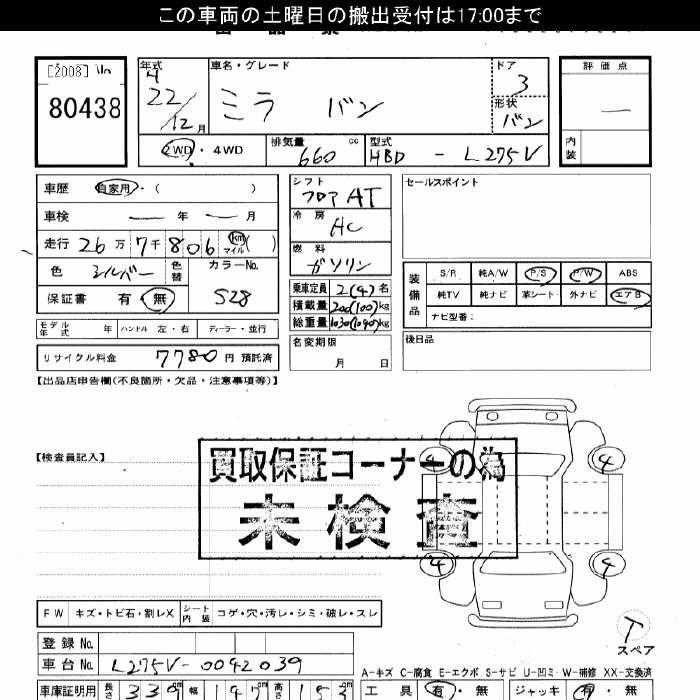 この車両の土曜日の搬出受付は17:00まで
[2008]
80438
年式 車名・グレード ドア 評価点
22/12月 ミラ バン 3 ー
形状 バン
2WD・4WD 排気量 660cc 型式 HBD - L275V 内装
車歴 自家用・( )
シフト フロア AT
セールスポイント
車検 ー年 ー月
冷房 AC
走行 26万7千806 km マイル ( )
燃料 ガソリン
色 シルバー 色替 カラーNo. S28
保証書 有・無
装備品 S/R 純A/W P/S P/W ABS
純TV 純ナビ 革シート 外ナビ エアB
ナビ型番:
乗車定員 2(4)名
積載量 200(100)kg
総重量 1030(1090)kg
モデル年式 年 ハンドル 左・右 ディーラー・並行
名変期限 月 日
後日品
リサイクル料金 7780円 預託済
【出品店申告欄(不良箇所・欠品・注意事項等)】
【検査員記入】
買取保証コーナーの為
未検査
4 4
4 4
FW キズ・トビ石・割レX シート内装 コゲ・穴・汚レ・シミ・破レ・スレ
T
スペア
登録No.
車台No. L275V-0042039
A-キズ C-腐食 E-エクボ S-サビ U-凹ミ W-補修 XX-交換済
車庫証明用 長さ 339cm 幅 147cm 高さ 153cm 工具 有・無 ジャッキ 有・無